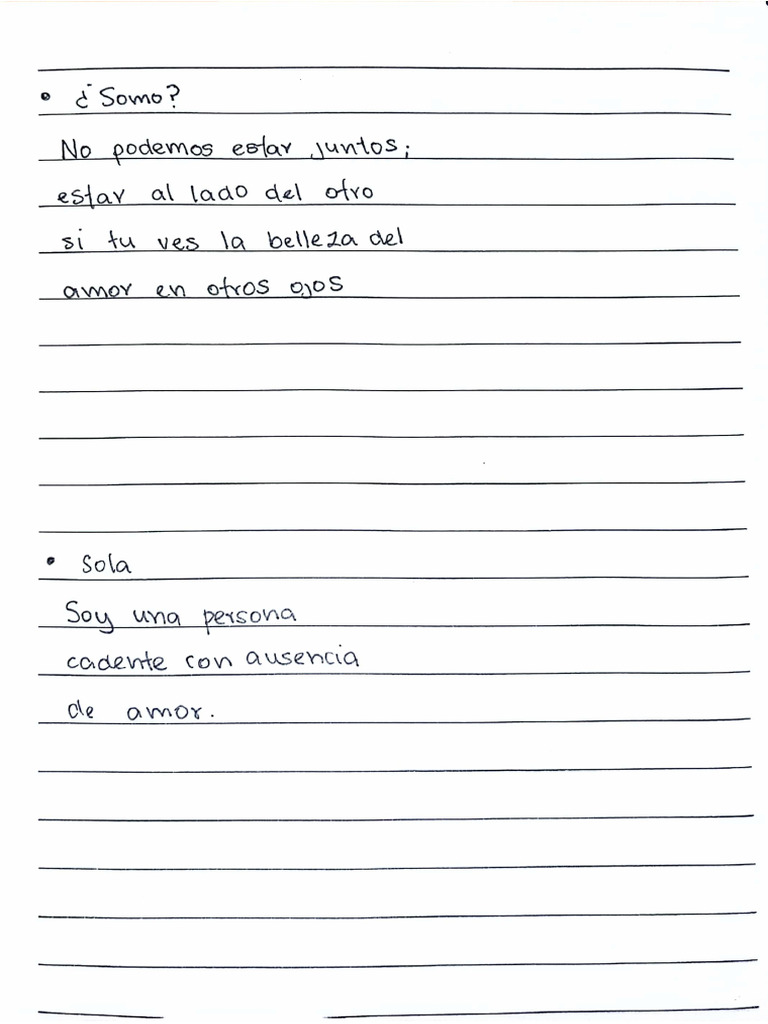 • ¿Somo?
No podemos estar juntos;
estar al lado del otro
si tu ves la belleza del
amor en otros ojos
• Sola
Soy una persona
cadente con ausencia
de amor.